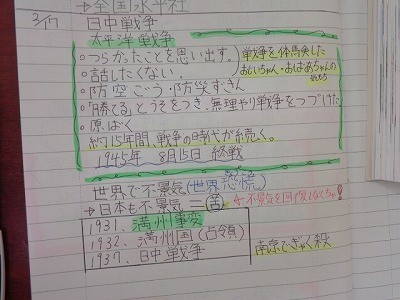 →全国水平社
3/17 日中戦争
太平洋戦争
。つらかったことを思い出す。
。話したくない。
戦争を体馬剣した
おじいちゃん・おばあちゃんの
気もち
。防空ごう・防災ずきん
。「勝てる」とうそをつき、無理やり戦争をつづけた
。原ばく
約15年間、戦争の時代が続く。
1945年 8月15日 終戦
世界で不景気(世界恐慌)
→日本も不景気=苦 不景気を回復しなくちゃ!
1931、満州事変
1932、満州国(占領)
1937、日中戦争
南京でぎゃく殺